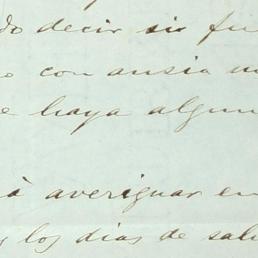 do decir si fu
con ansia un
e haya algun
à averiguar en
los dias de sal